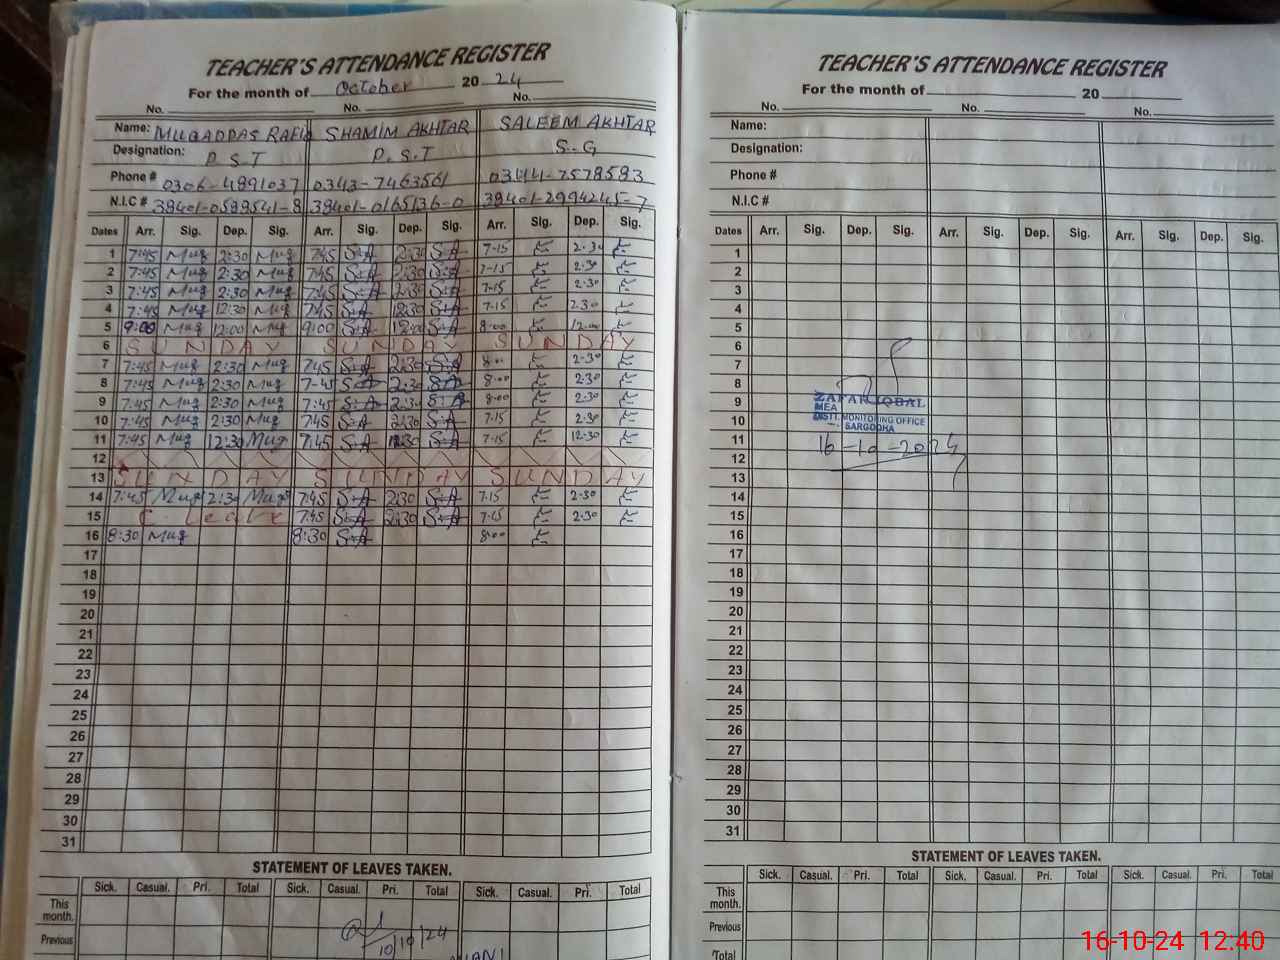 TEACHER'S ATTENDANCE REGISTER
For the month of October 20 24
No. No. No.
Name: MUQADDAS RAFIQ SHAMIM AKHTAR SALEEM AKHTAR
Designation: P.S.T P.S.T S.G
Phone # 0306-4891037 0343-7463561 0344-7578583
N.I.C # 38401-0589541-8 38401-0165136-0 38401-2994245-7
Dates Arr. Sig. Dep. Sig. Arr. Sig. Dep. Sig. Arr. Sig. Dep. Sig.
1 7:45 Muq 2:30 Muq 7:45 S.A 2:30 S.A 7-15 2.30
2 7:45 Muq 2:30 Muq 7:45 S.A 2:30 S.A 7-15 2.30
3 7:45 Muq 2:30 Muq 7:45 S.A 2:30 S.A 7-15 2.30
4 7:45 Muq 12:30 Muq 7:45 S.A 12:30 S.A 7-15 2.30
5 9:00 Muq 12:00 Muq 9:00 S.A 12:00 S.A 8-00 12.00
6 SUNDAY SUNDAY SUNDAY
7 7:45 Muq 2:30 Muq 7:45 S.A 2:30 S.A 8.00 2.30
8 7:45 Muq 2:30 Muq 7-45 S.A 2:30 S.A 8.00 2.30
9 7:45 Muq 2:30 Muq 7:45 S.A 2:30 S.A 8.00 2.30
10 7:45 Muq 2:30 Muq 7:45 S.A 2:30 S.A 7.15 2.30
11 7:45 Muq 12:30 Muq 7:45 S.A 12:30 S.A 7-15 12.30
12
13 SUNDAY SUNDAY SUNDAY
14 7:45 Muq 2:30 Muq 7:45 S.A 2:30 S.A 7.15 2.30
15 C. Leave 7:45 S.A 2:30 S.A 7-15 2.30
16 8:30 Muq 8:30 S.A 8.00
17
18
19
20
21
22
23
24
25
26
27
28
29
30
31
STATEMENT OF LEAVES TAKEN.
Sick. Casual. Pri. Total Sick. Casual. Pri. Total Sick. Casual. Pri. Total
This month.
Previous
10/10/24
TEACHER'S ATTENDANCE REGISTER
For the month of 20
No. No. No.
Name:
Designation:
Phone #
N.I.C #
Dates Arr. Sig. Dep. Sig. Arr. Sig. Dep. Sig. Arr. Sig. Dep. Sig.
1
2
3
4
5
6
7
8
9
10
11
12
13
14
15
16
17
18
19
20
21
22
23
24
25
26
27
28
29
30
31
ZAFAR IQBAL
MEA
DISTT. MONITORING OFFICE
SARGODHA
16-10-2024
STATEMENT OF LEAVES TAKEN.
Sick. Casual. Pri. Total Sick. Casual. Pri. Total Sick. Casual. Pri. Total
This month.
Previous
Total
16-10-24 12:40